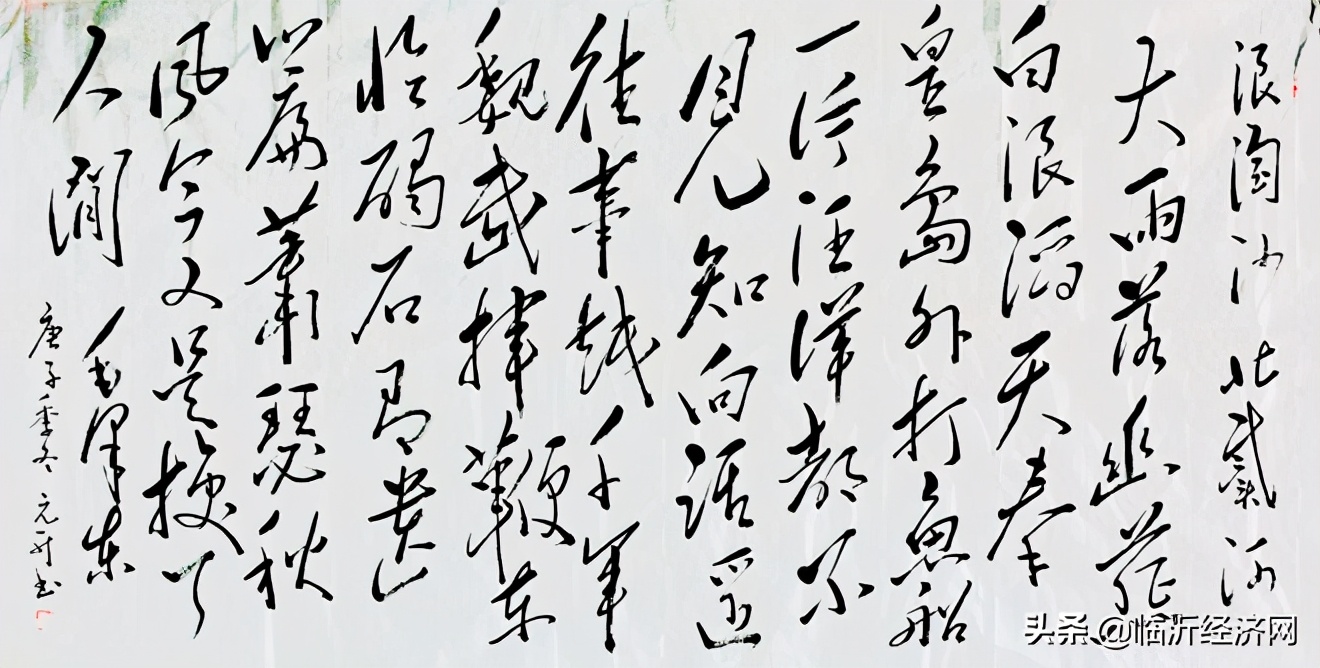 浪淘沙 北戴河
大雨落幽燕
白浪滔天秦
皇島外打魚船
一片汪洋都不
見知向誰邊
往事越千年
魏武揮鞭东
临碣石有遗
篇萧瑟秋
風今又是换了
人间 毛泽东
庚子季冬 元书
头条 @临沂经济网